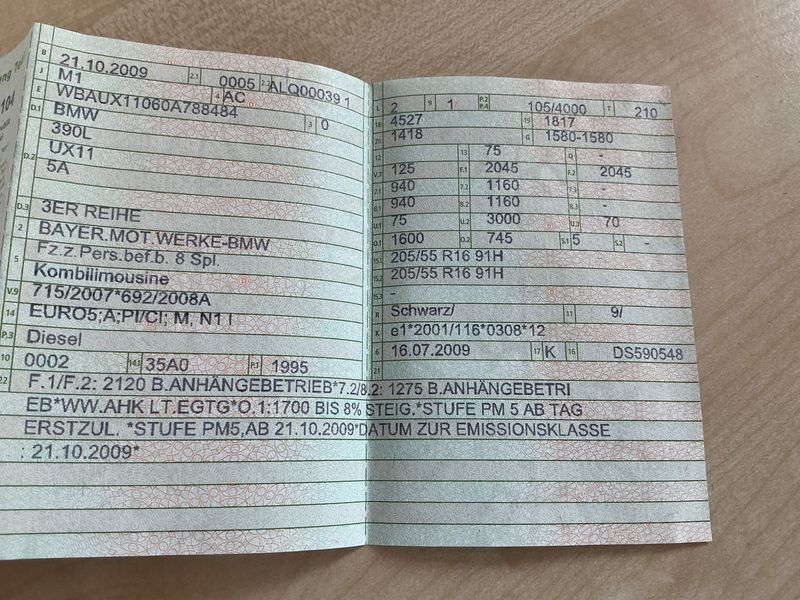 ng Tei
104
B 21.10.2009 2.1 0005 2.2 ALQ00039 1
J M1 4 AC
E WBAUX11060A788484 3 0
D.1 BMW
390L
D.2 UX11
5A
D.3 3ER REIHE
2 BAYER.MOT.WERKE-BMW
5 Fz.z.Pers.bef.b. 8 Spl.
Kombilimousine
V.9 715/2007*692/2008A
14 EURO5;A;PI/CI; M, N1 I
P.3 Diesel
10 0002 14.1 35A0 P.1 1995
L 2 9 1 P.2 P.4 105/4000 T 210
18 4527 19 1817
20 1418 G 1580-1580
12 13 75 Q -
V.7 125 F.1 2045 F.2 2045
7.1 940 7.2 1160 7.3 -
8.1 940 8.2 1160 8.3 -
U.1 75 U.2 3000 U.3 70
O.1 1600 O.2 745 S.1 5 S.2 -
15.1 205/55 R16 91H
15.2 205/55 R16 91H
15.3 -
R Schwarz/ 11 9/
K e1*2001/116*0308*12
6 16.07.2009 17 K 16 DS590548
21
22 F.1/F.2: 2120 B.ANHÄNGEBETRIEB*7.2/8.2: 1275 B.ANHÄNGEBETRI
EB*WW.AHK LT.EGTG*O.1:1700 BIS 8% STEIG.*STUFE PM 5 AB TAG
ERSTZUL. *STUFE PM5,AB 21.10.2009*DATUM ZUR EMISSIONSKLASSE
: 21.10.2009*